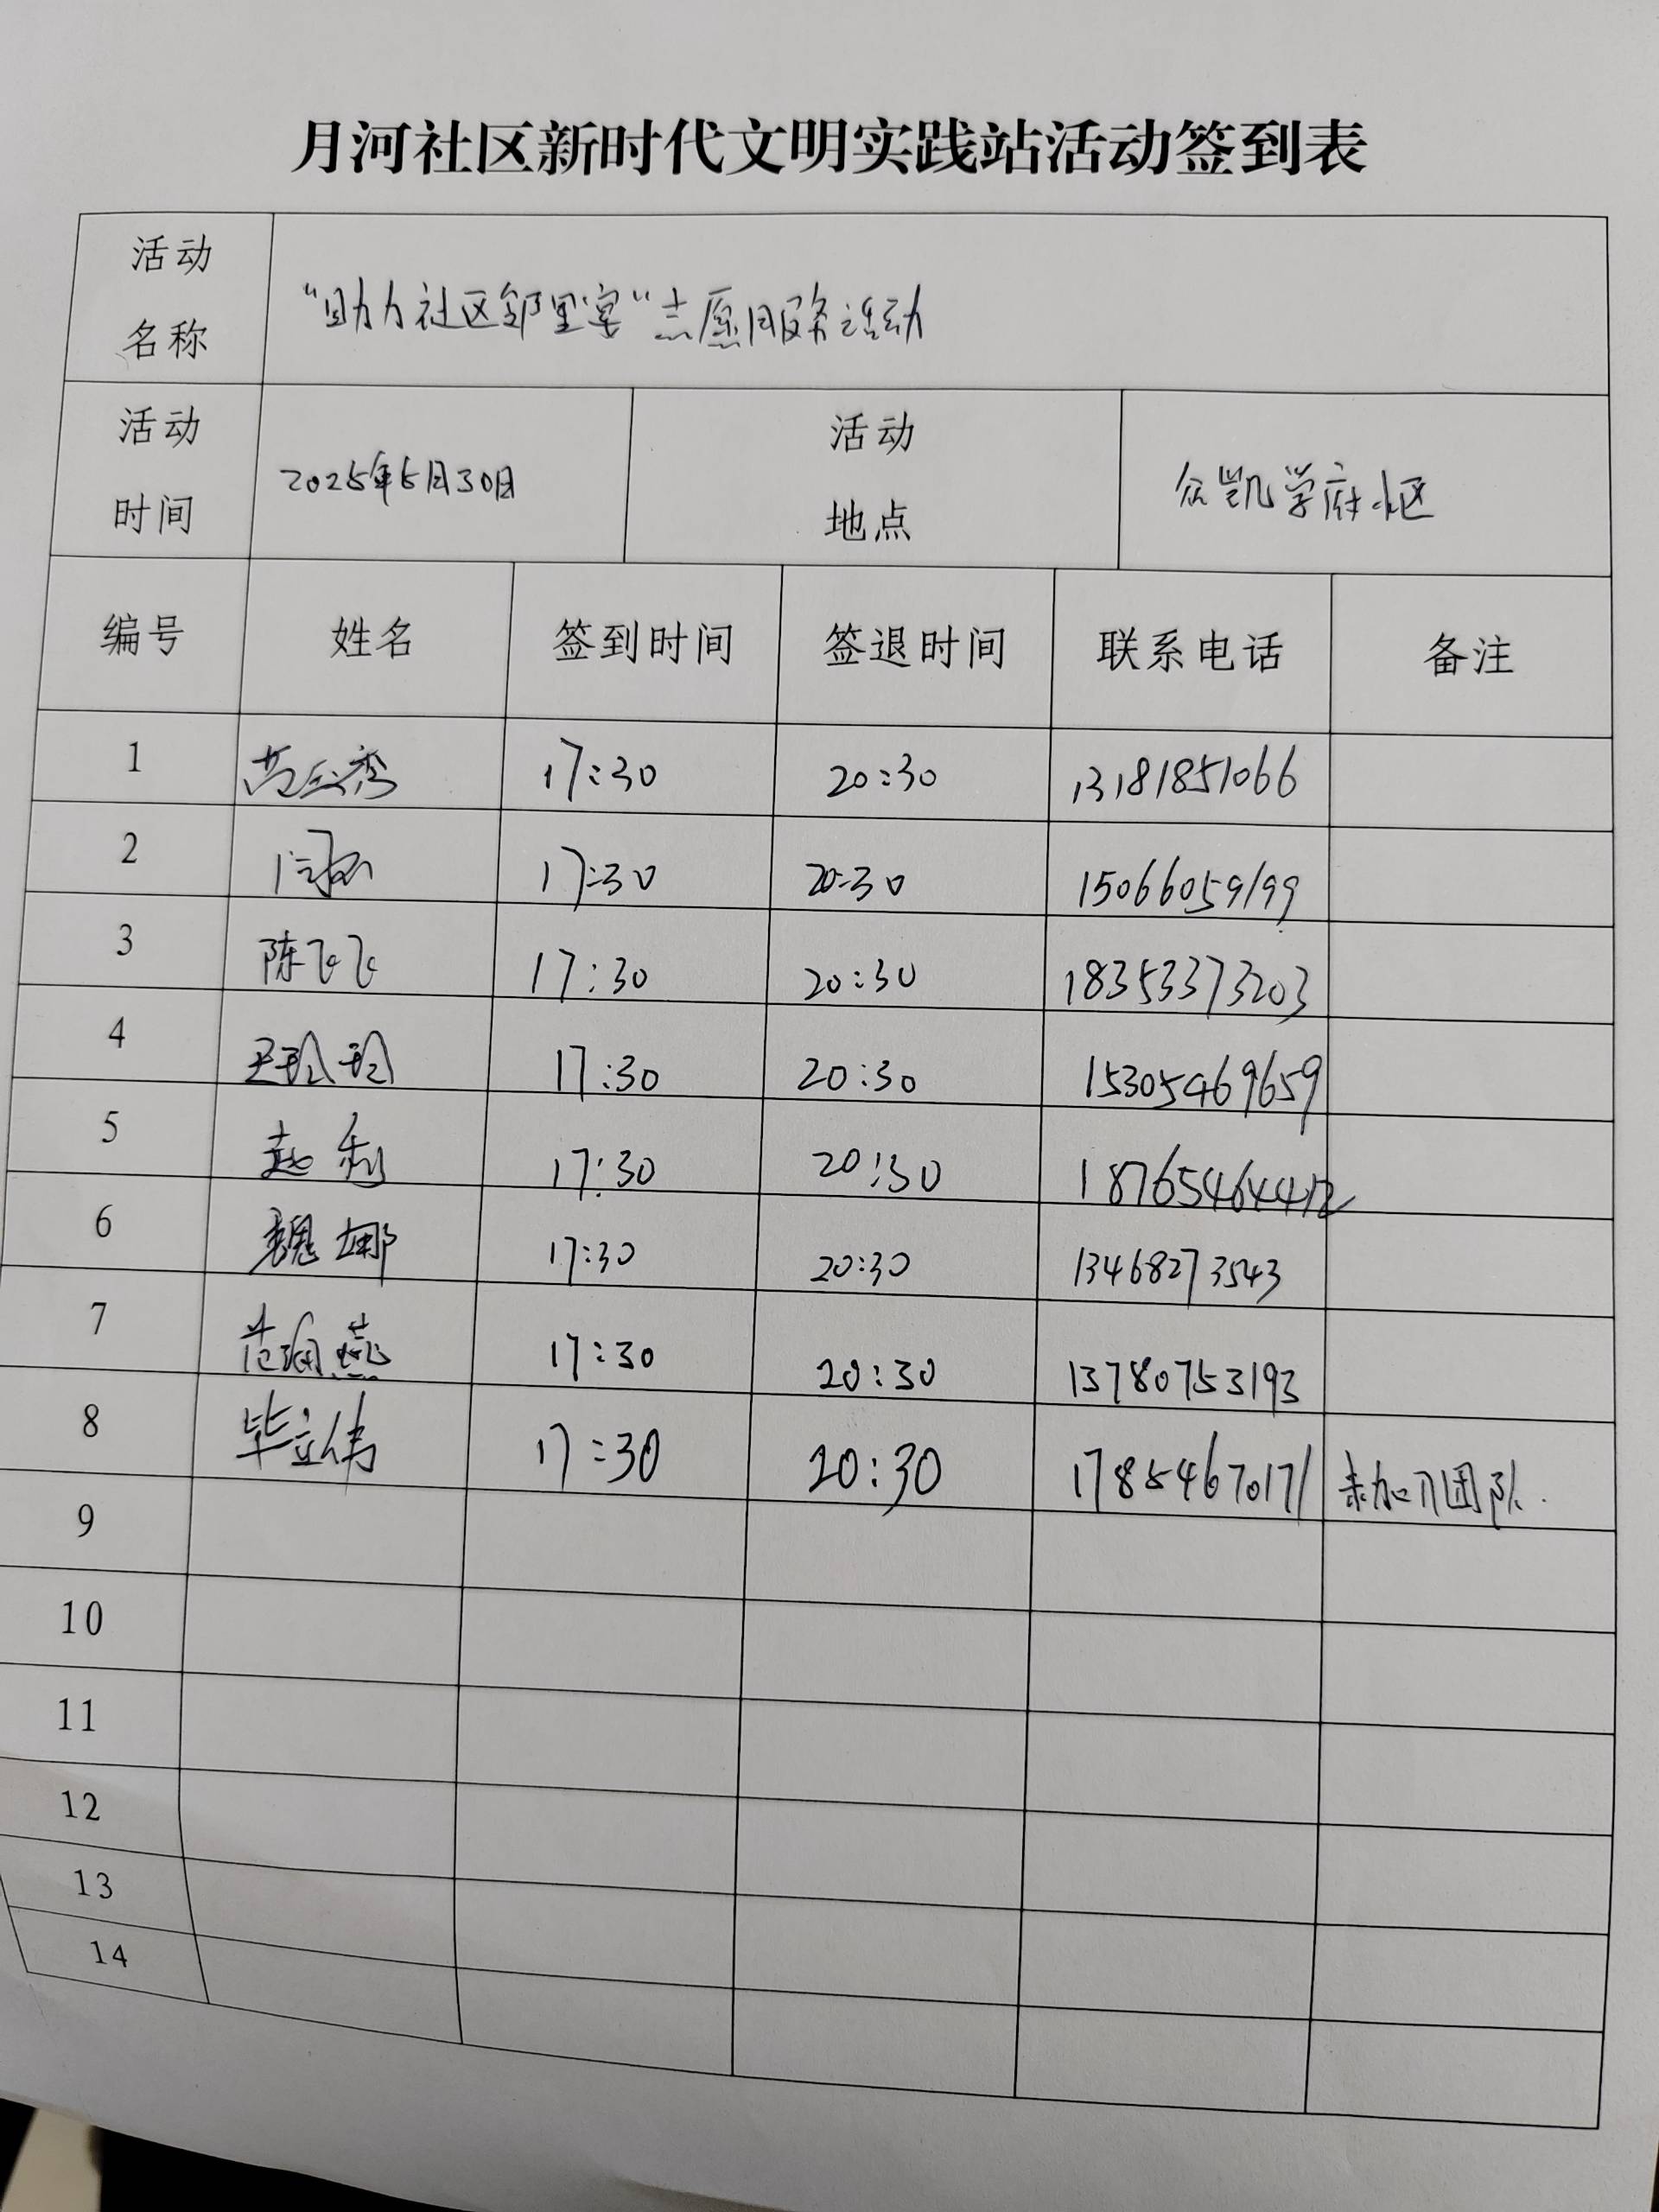 月河社区新时代文明实践站活动签到表
活动名称 "助力社区邻里宴"志愿服务活动
活动时间 2025年5月30日 活动地点 众凯学府小区
编号 姓名 签到时间 签退时间 联系电话 备注
1 17:30 20:30 13181851066
2 17:30 20:30 15066059199
3 陈飞飞 17:30 20:30 18353373203
4 王玲玲 17:30 20:30 15305469659
5 赵利 17:30 20:30 18765464412
6 魏娜 17:30 20:30 13468273543
7 范珣燕 17:30 20:30 13780753193
8 毕立伟 17:30 20:30 17854670171 未加入团队.
9
10
11
12
13
14